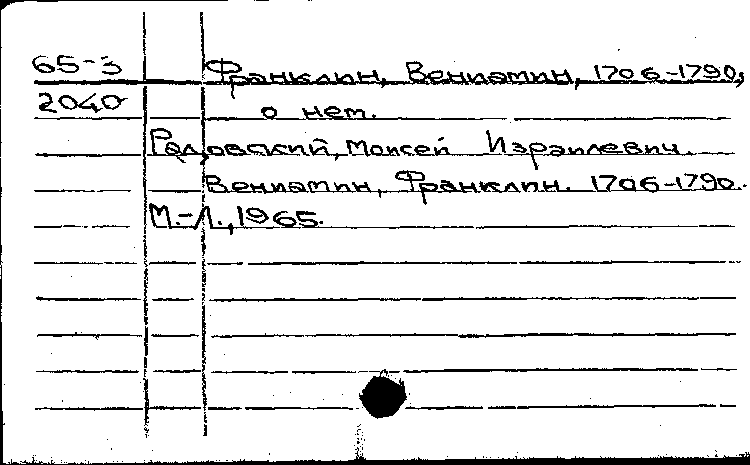 65-3 Франклин, Вениамин, 1706-1790,
2040 о нем.
Радовский, Моисей Израилевич.
Вениамин, Франклин. 1706-1790.
М.-Л., 1965.